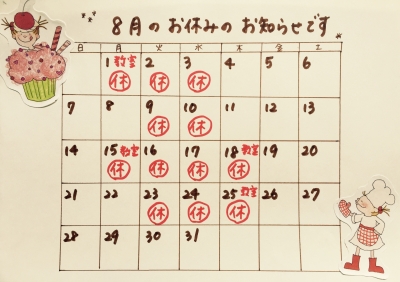 8月のお休みのお知らせです
日 月 火 水 木 金 土
1 教室 2 3 4 5 6
休 休 休
7 8 9 10 11 12 13
休 休
14 15 教室 16 17 18 教室 19 20
休 休 休 休
21 22 23 24 25 教室 26 27
休 休 休
28 29 30 31